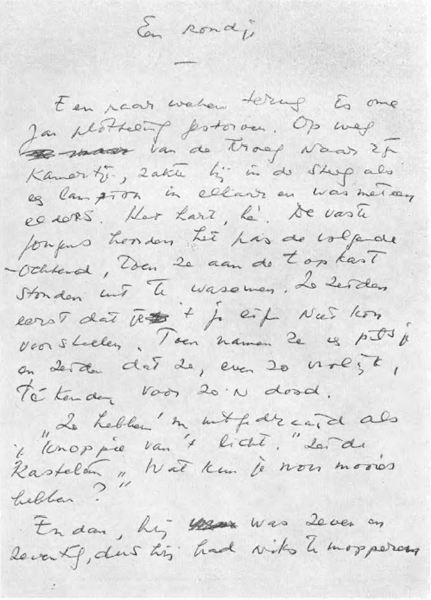 Een rondje
—
Een paar weken terug is ome
Jan plotseling gestorven. Op weg
van de kroeg naar z'n
kamertje, zakte hij in de steeg als
een lampion in elkaar en was meteen
elders. Het hart, hè. De vaste
jongens hoorden het pas de volgende
ochtend, toen ze aan de tapkast
stonden uit te wasemen. Ze zeiden
eerst dat je 't je eige niet kon
voorstellen. Toen namen ze een pilsje
en zeiden dat ze, even zo vrolijk,
tékenden voor zo'n dood.
„Ze hebben 'm uitgedraaid als
't knoppie van 't licht." zeide
kastelein „Wat kun je nou moois
hebben?"
En dan, hij was zeven en
zeventig, dus hij had niks te mopperen